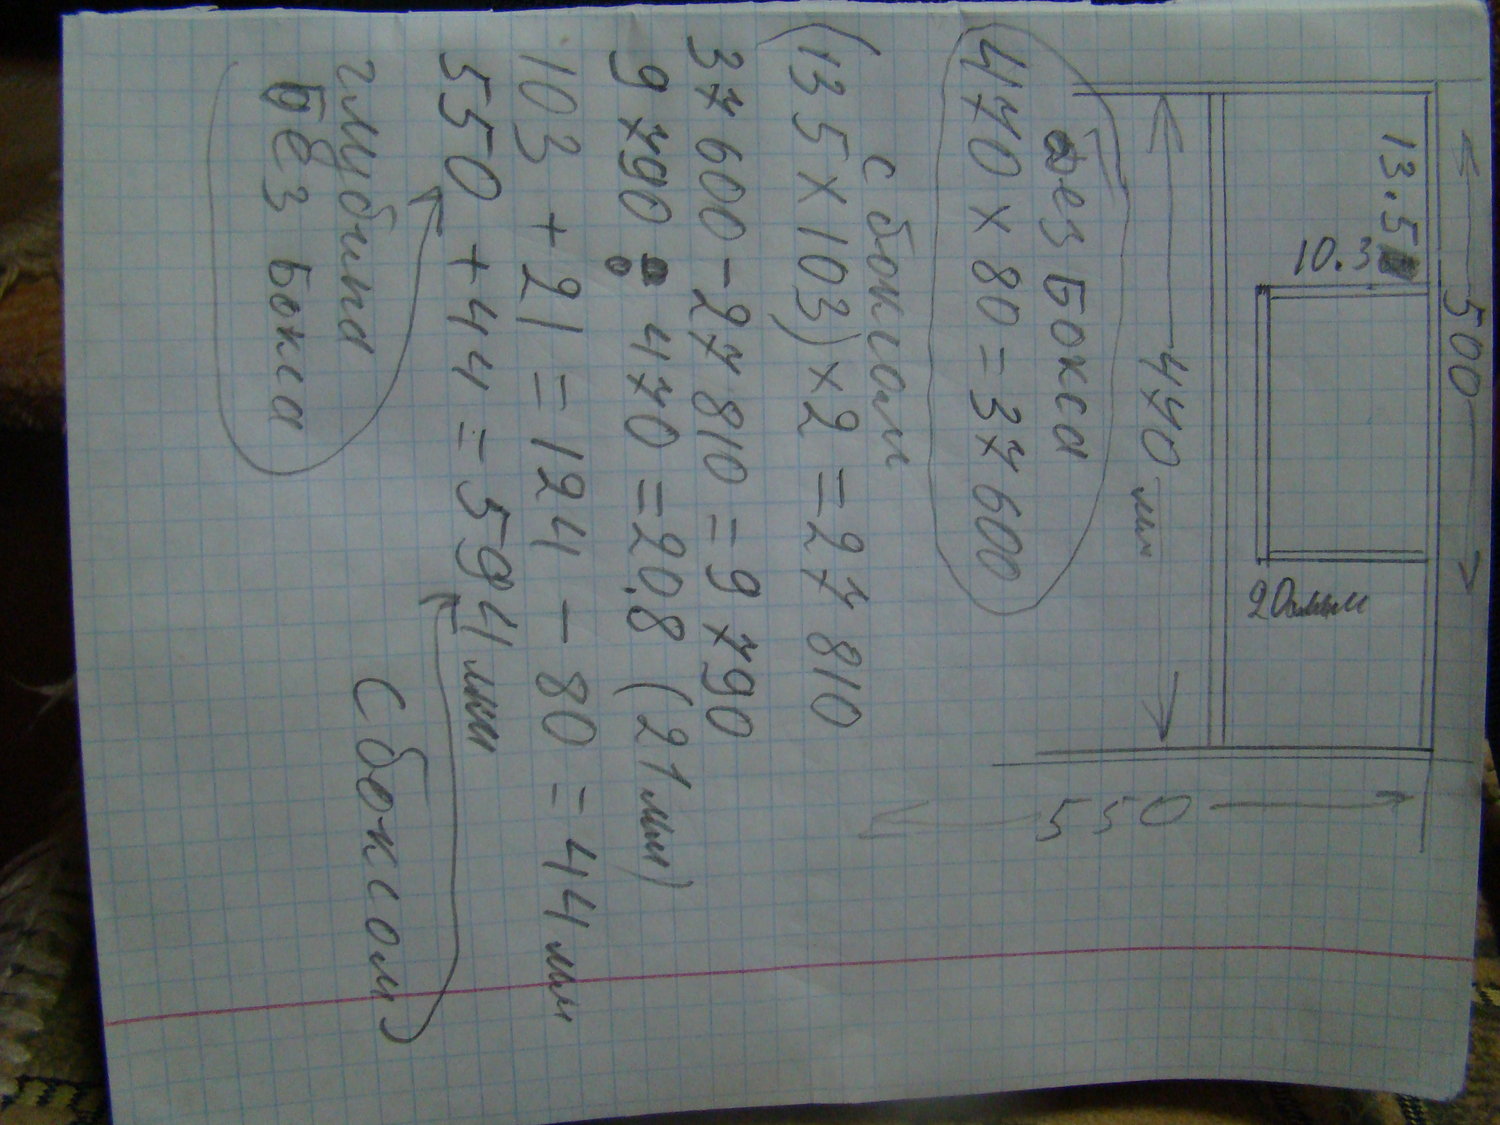 500
13.5
10.3
20мм
470 мм
550
без бокса
470 х 80 = 37600
с боксом
(135 х 103) х 2 = 27810
37600 - 27810 = 9790
9790 : 470 = 20,8 (21мм)
103 + 21 = 124 - 80 = 44 мм
550 + 44 = 594 мм
глубина
без бокса
с боксом